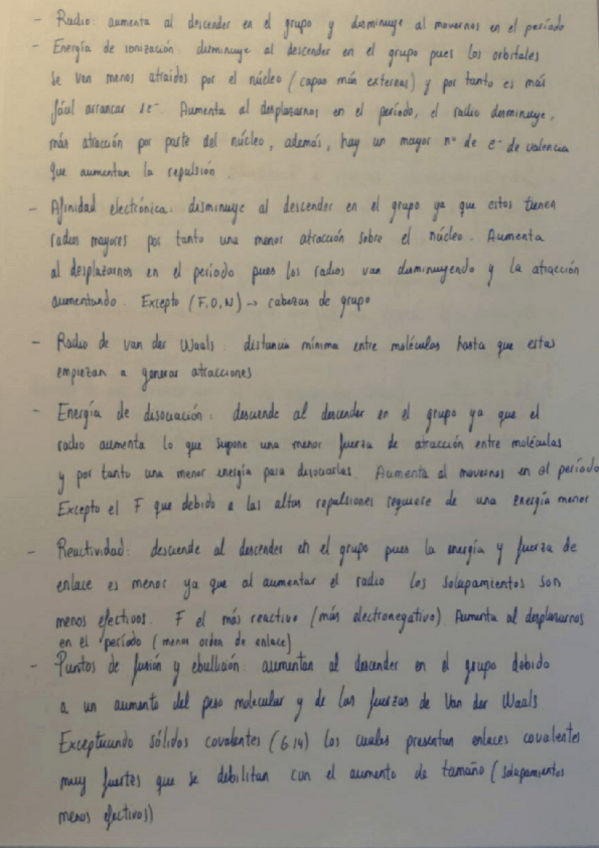 - Radio: aumenta al descender en el grupo y disminuye al movernos en el período
- Energía de ionización: disminuye al descender en el grupo pues los orbitales
se ven menos atraídos por el núcleo (capas más externas) y por tanto es más
fácil arrancar 1e⁻. Aumenta al desplazarnos en el período, el radio disminuye,
más atracción por parte del núcleo, además, hay un mayor nº de e⁻ de valencia
que aumentan la repulsión.
- Afinidad electrónica: disminuye al descender en el grupo ya que estos tienen
radios mayores por tanto una menor atracción sobre el núcleo. Aumenta
al desplazarnos en el período pues los radios van disminuyendo y la atracción
aumentando. Excepto (F, O, N) → cabezas de grupo
- Radio de van der Waals: distancia mínima entre moléculas hasta que estas
empiezan a generar atracciones
- Energía de disociación: desciende al descender en el grupo ya que el
radio aumenta lo que supone una menor fuerza de atracción entre moléculas
y por tanto una menor energía para disociarlas. Aumenta al movernos en el período
Excepto el F que debido a las altas repulsiones requiere de una energía menor
- Reactividad: desciende al descender en el grupo pues la energía y fuerza de
enlace es menor ya que al aumentar el radio los solapamientos son
menos efectivos. F el más reactivo (más electronegativo). Aumenta al desplazarnos
en el período (menos orden de enlace)
- Puntos de fusión y ebullición: aumentan al descender en el grupo debido
a un aumento del peso molecular y de las fuerzas de Van der Waals
Exceptuando sólidos covalentes (G.14) los cuales presentan enlaces covalentes
muy fuertes que se debilitan con el aumento de tamaño (solapamientos
menos efectivos))